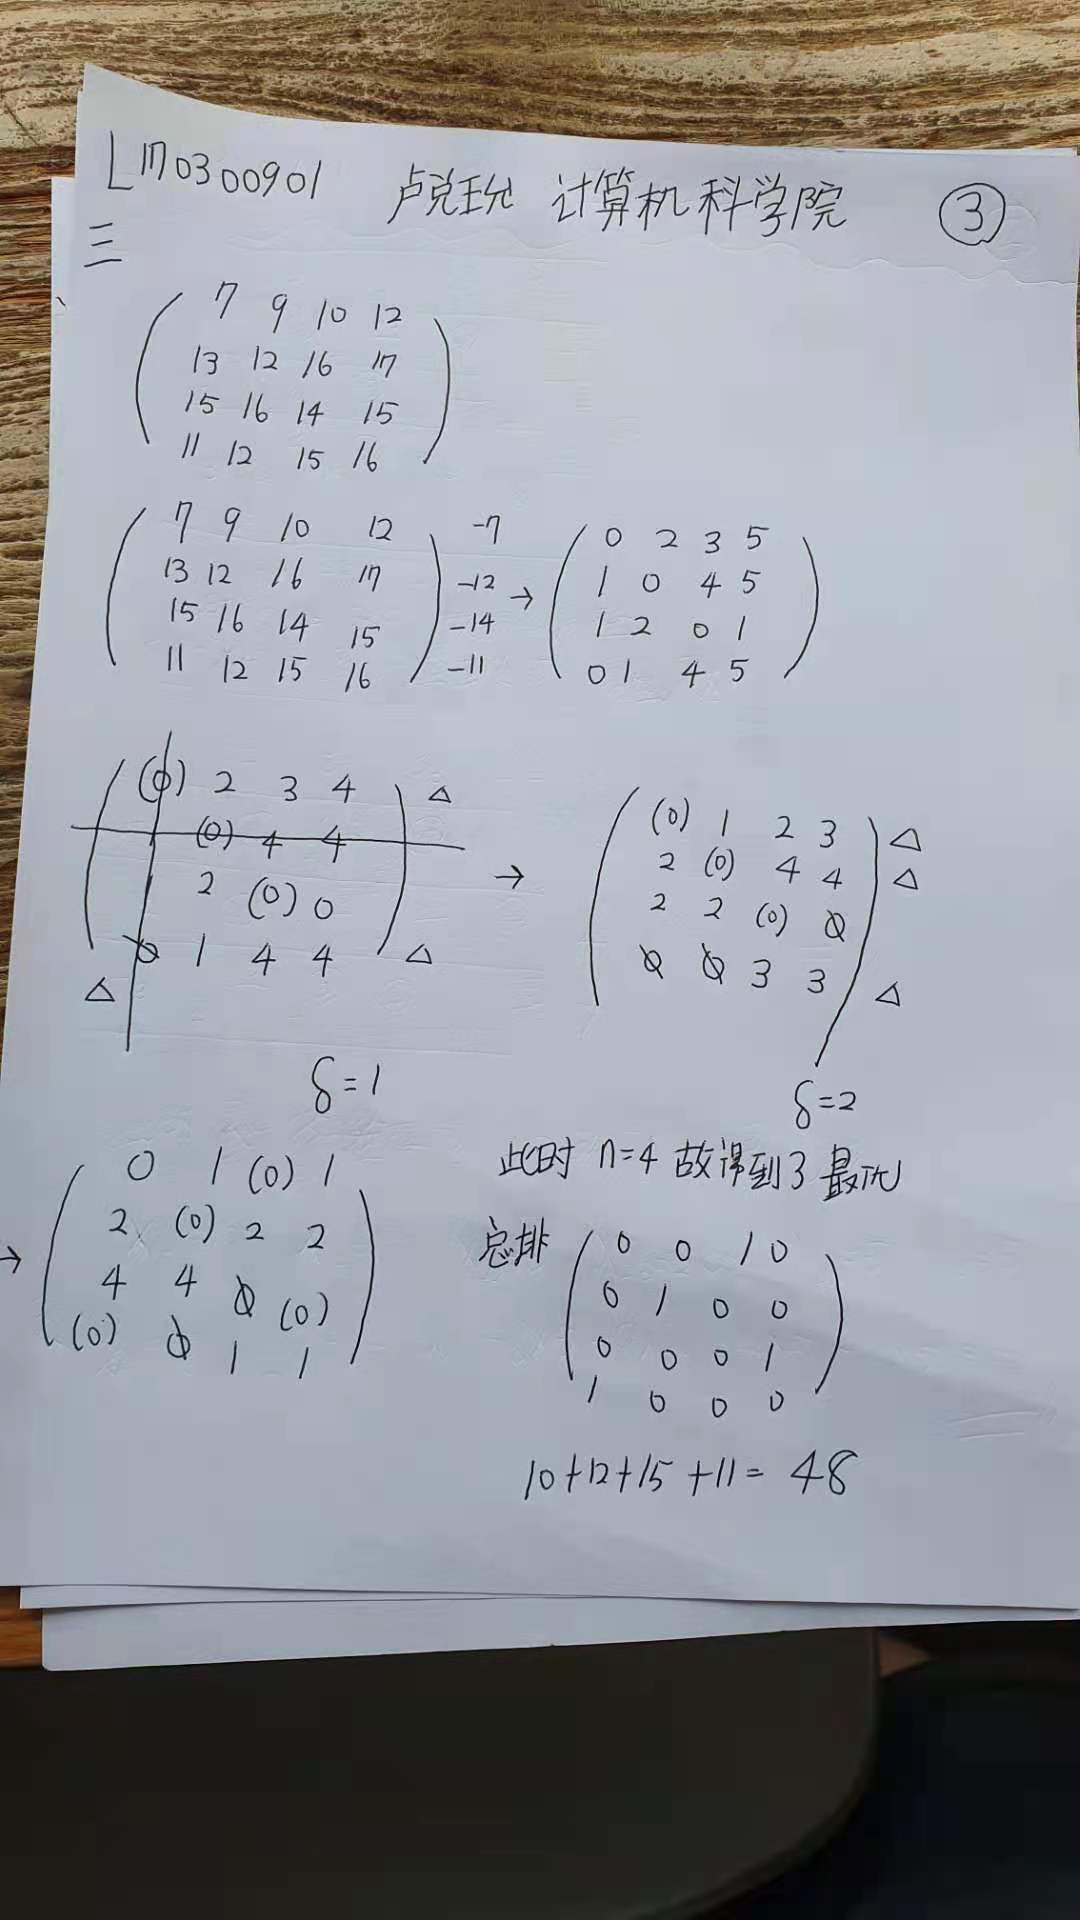 L170300901 卢兑珗 计算机科学院 ③
三
7 9 10 12
13 12 16 17
15 16 14 15
11 12 15 16
7 9 10 12 -7
13 12 16 17 -12
15 16 14 15 -14
11 12 15 16 -11
→
0 2 3 5
1 0 4 5
1 2 0 1
0 1 4 5
(0) 2 3 4 △
(0) 4 4
2 (0) 0
0 1 4 4 △
△
δ=1
→
(0) 1 2 3 △
2 (0) 4 4 △
2 2 (0) 0
0 0 3 3 △
δ=2
→
0 1 (0) 1
2 (0) 2 2
4 4 0 (0)
(0) 0 1 1
此时 n=4 故得到3最优
总排
0 0 1 0
0 1 0 0
0 0 0 1
1 0 0 0
10+12+15+11= 48